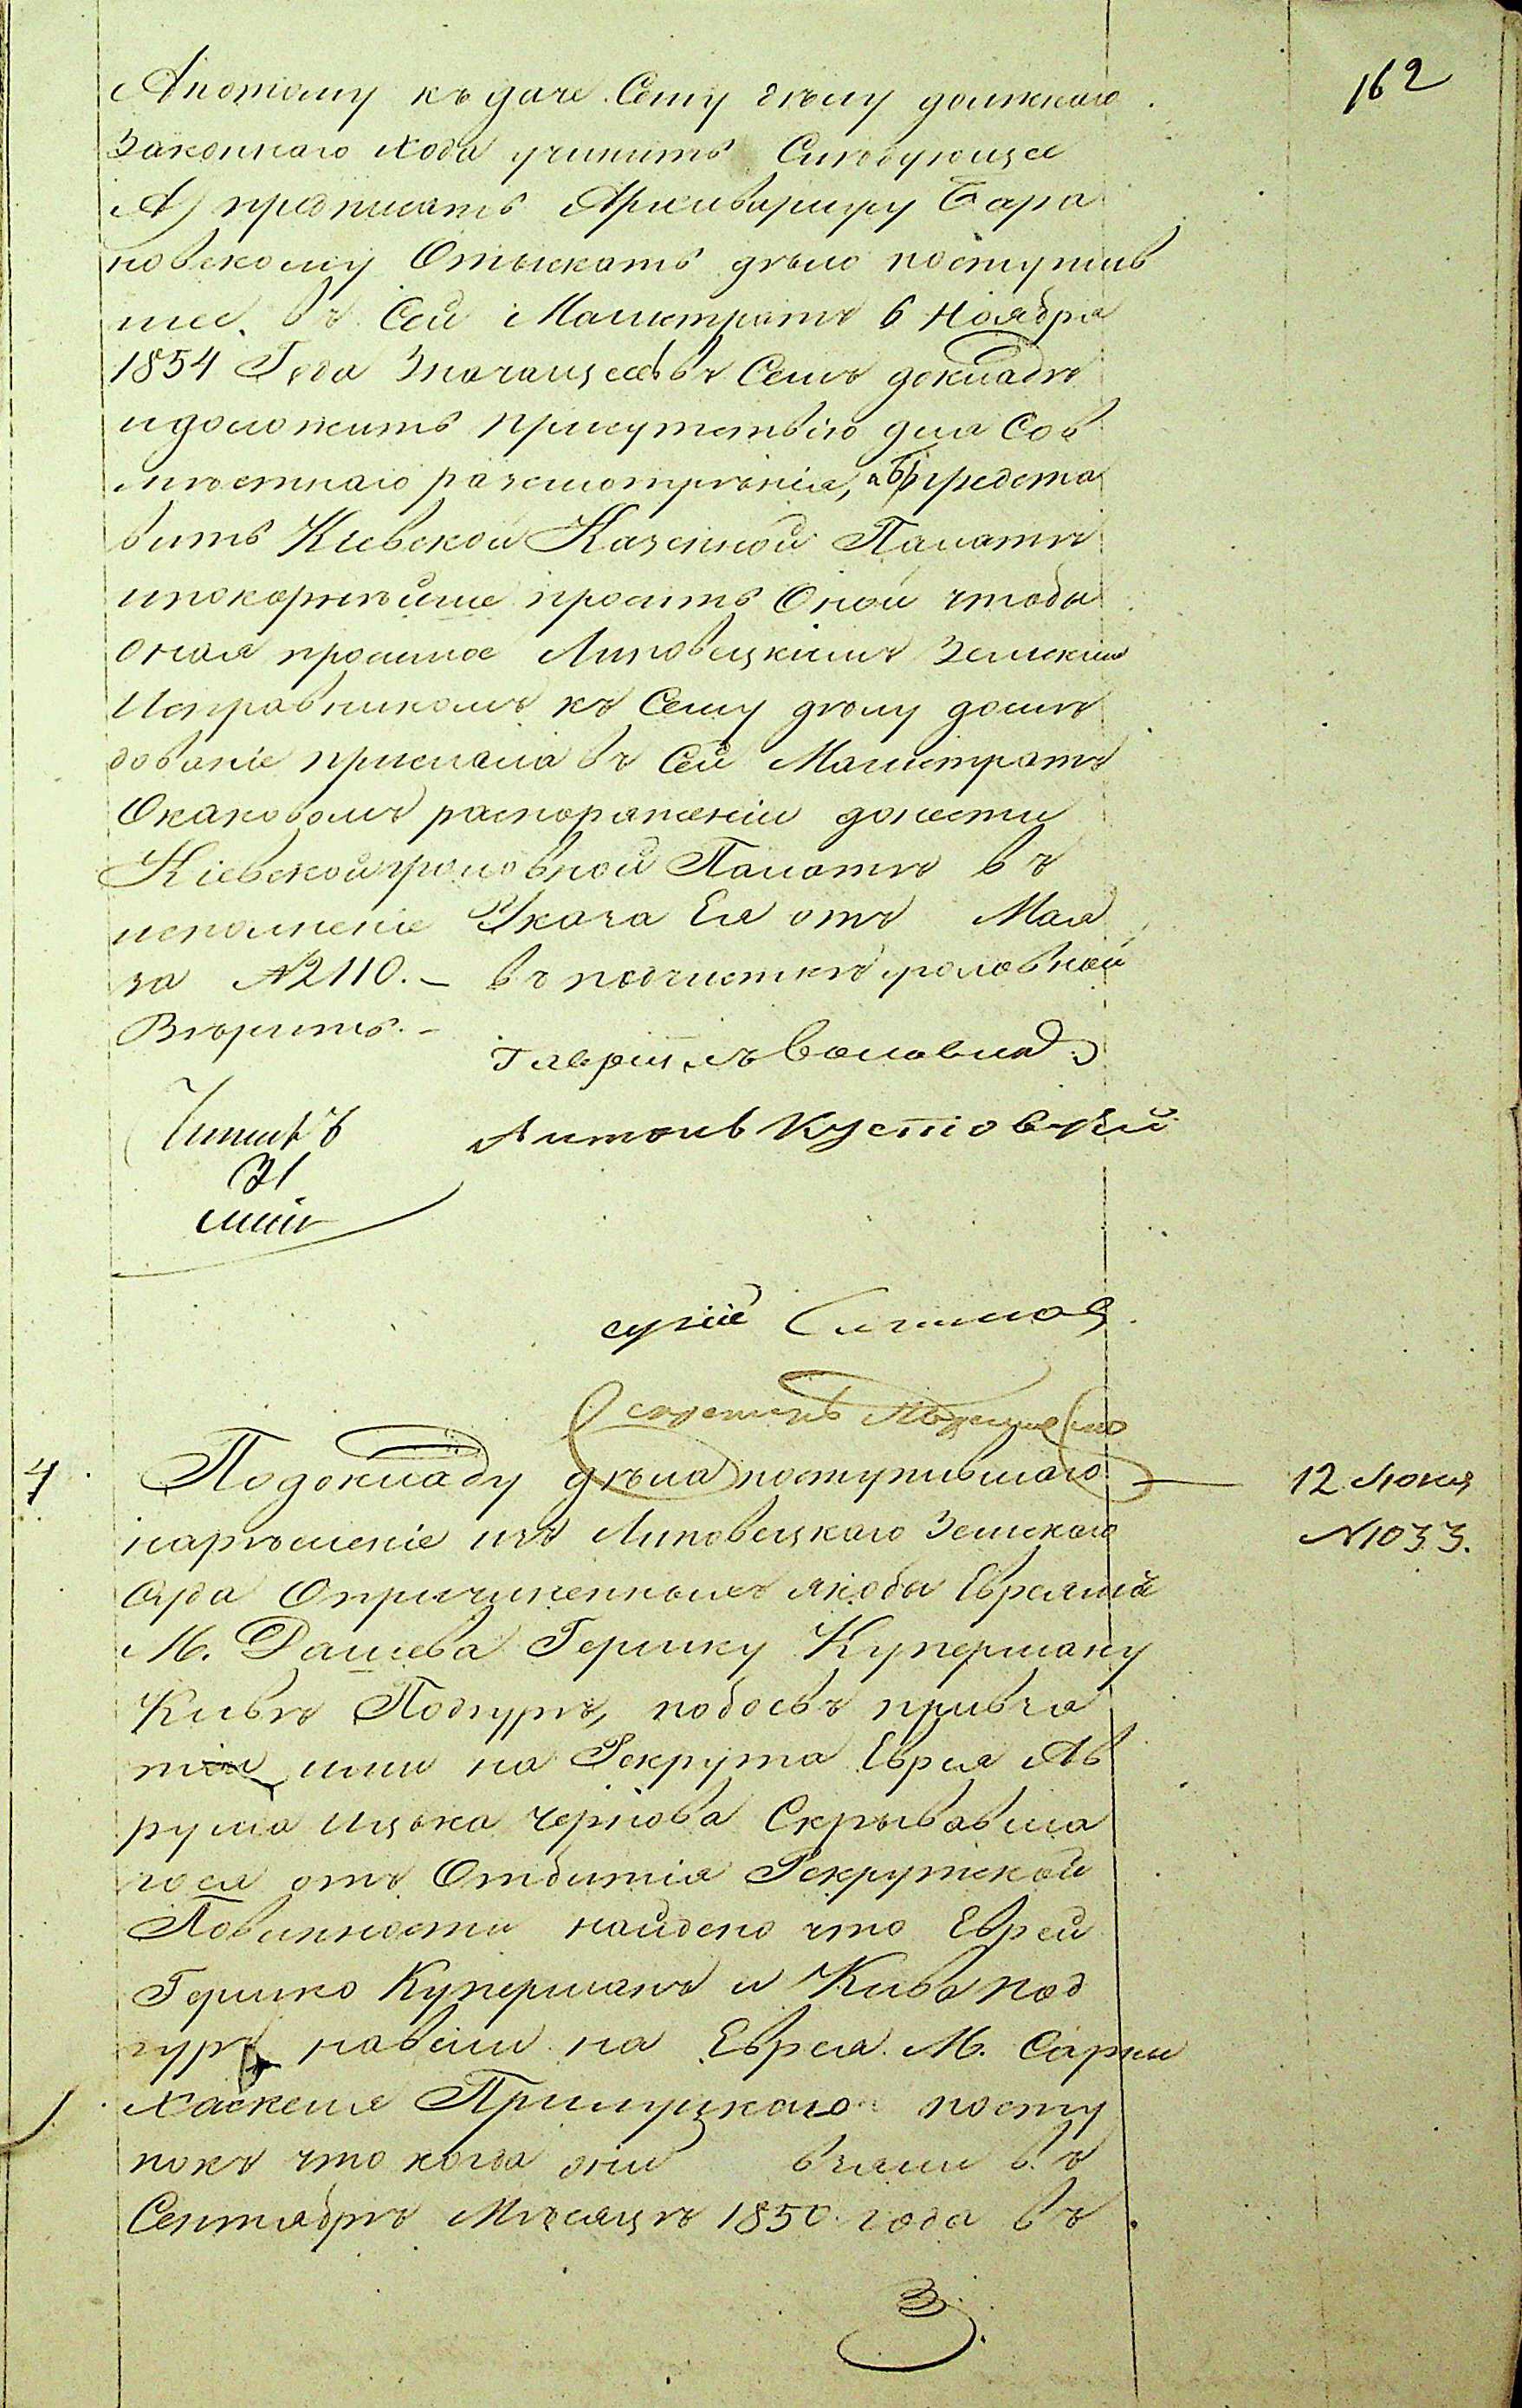 162
А потому къ даче Сему делу должнаго
Законнаго хода учинить Следующее
А) предписать Архивариусу Бара
новскому Отыскать дело поступив
шее въ Сей Магистратъ 6 Ноября
1854 Года Значащееся въ Семъ докладѣ
и доложить присутствію для Сов
мѣстнаго разсмотрѣнія, а Б) предста
вить Кіевской Казенной Палатѣ
и покорнѣйше просить Оной чтобы
оная просимое Липовецкимъ Земскимъ
Исправникомъ къ Сему дѣлу дослѣ
дованіе прислала въ Сей Магистратъ
О каковомъ распоряженіи донести
Кіевской уголовной Палатѣ въ
исполненіе Указа Ея отъ Мая
за №2110. — въ подчисткѣ уголовной
Вѣрить. —
Гавріилъ
Антонъ Кустовскій
31
4.
По докладу дѣла поступившаго —
12 Іюня
№1033.
на рѣшеніе изъ Липовецкаго Земскаго
Суда О причиненныхъ якобы Евреямъ
М. Дашева Гершку Куперману
Кивѣ Подгурѣ, побоевъ при взя
тіи ими на Рекрута Еврея Ав
рума Ицька Чернова Скрывавша
гося отъ Отбитія Рекрутской
Повинности найдено что Евреи
Гершко Куперманъ и Кива Под
гуръ навели на Еврея М.
Хаскеля Прилуцкаго посту
покъ что когда они взяли въ
Сентябрѣ Мѣсяцѣ 1850 года въ